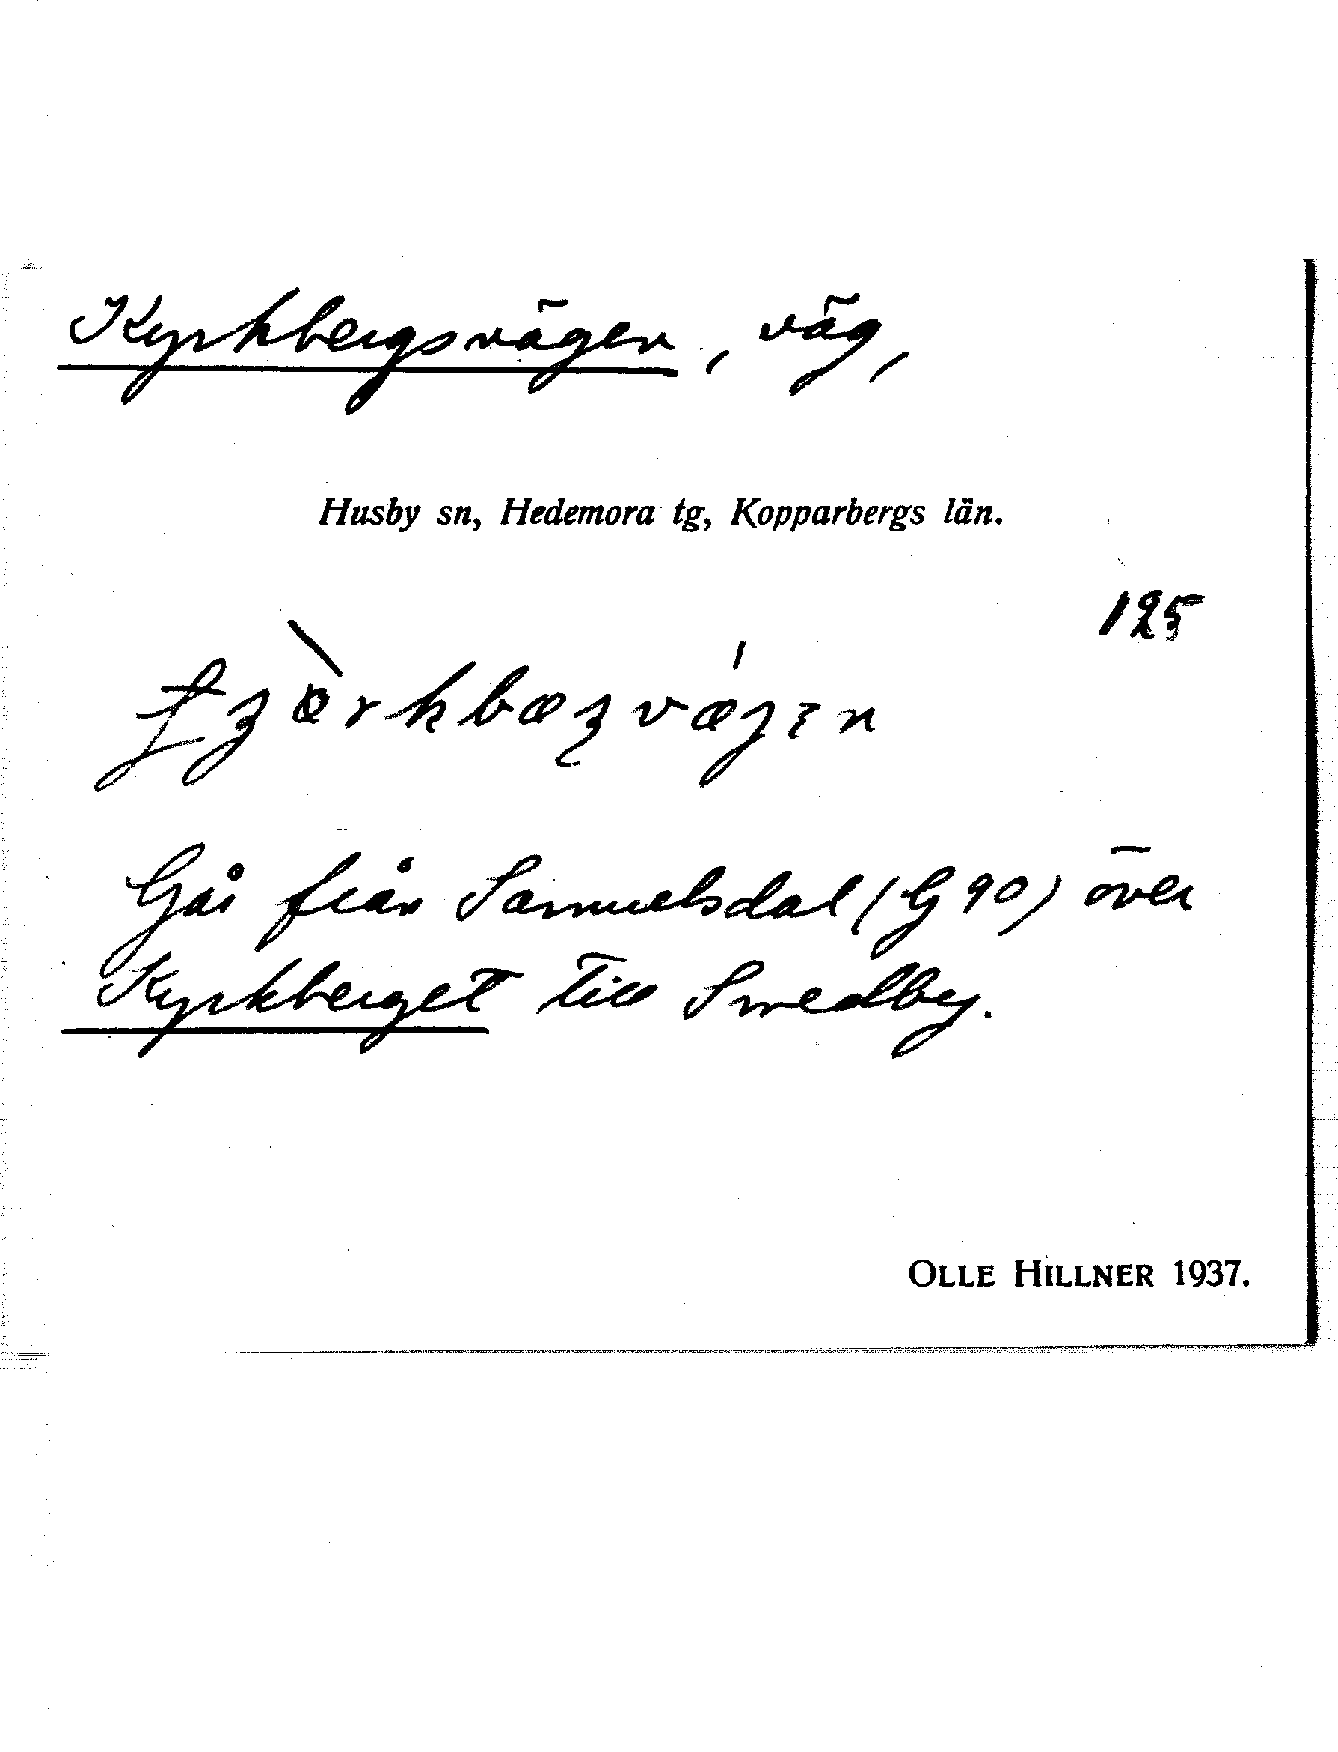 Kyrkbergsvägen, väg,
Husby sn, Hedemora tg, Kopparbergs län.
125
Går från Samuelsdal (G 90) över
Kyrkberget till Smedby.
OLLE HILLNER 1937.